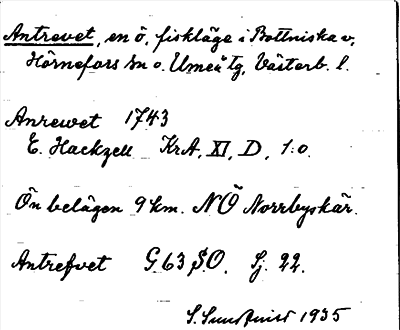 Antrevet, en ö, fiskläge i Bottniska v,
Hörnefors sn o. Umeå tg, Västerb. l.
Anrewet 1743
E. Hackzell KrA, XI, D, 1:o.
Ön belägen 9 km. NÖ Norrbyskär.
Antrefvet G. 63 S.O. Sj. 22.
S. Sundqvist 1935